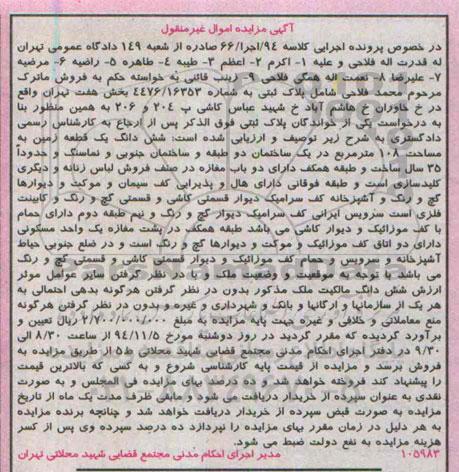 آگهی مزایده اموال غیرمنقول
در خصوص پرونده اجرایی کلاسه ۹۴/اجرا/۶۶ صادره از شعبه ۱۴۹ دادگاه عمومی تهران
له قدرت اله فلاحی و علیه ۱- اکرم ۲- اعظم ۳- طیبه ۴- طاهره ۵- راضیه ۶- مرضیه
۷- علیرضا ۸- نعمت اله همگی فلاحی ۹- زینب قائنی به خواسته حکم به فروش ماترک
مرحوم محمد فلاحی شامل پلاک ثبتی به شماره ۴۴۷۶/۱۶۳۵۳ بخش هفت تهران واقع
در خ خاوران خ هاشم آباد خ شهید عباس کاشی پ ۲۰۴ و ۲۰۶ به همین منظور بنا
به درخواست یکی از خواندگان پلاک ثبتی فوق الذکر پس از ارجاع به کارشناس رسمی
دادگستری به شرح زیر توصیف و ارزیابی شده است: شش دانگ یک قطعه زمین به
مساحت ۱۰۸ مترمربع در یک ساختمان دو طبقه و ساختمان جنوبی و نماسنگ - حدوداً
۳۵ سال ساخت و طبقه همکف دارای دو باب مغازه در صنف فروش لباس زنانه و دیگری
کلیدسازی است و طبقه فوقانی دارای هال و پذیرایی کف سیمان و موکت و دیوارها
گچ و رنگ و آشپزخانه کف سرامیک دیوار قسمتی کاشی و قسمتی گچ و رنگ و کابینت
فلزی است سرویس ایرانی کف سرامیک دیوار گچ و رنگ و نیم طبقه دوم دارای حمام
با کف موزائیک و دیوار کاشی می باشد طبقه همکف در پشت مغازه یک واحد مسکونی
دارای دو اتاق کف موزائیک و موکت و دیوارها گچ و رنگ است و در ضلع جنوبی حیاط
آشپزخانه و سرویس و حمام کف موزائیک و دیوار قسمتی کاشی و قسمتی گچ و رنگ
می باشد. با توجه به موقعیت و وضعیت ملک و با در نظر گرفتن سایر عوامل موثر
ارزش شش دانگ مالکیت ملک مذکور بدون در نظر گرفتن هرگونه بدهی احتمالی به
هر یک از سازمانها و ارگانها و بانک و شهرداری و غیره و بدون در نظر گرفتن هرگونه
منع معاملاتی و خلافی و غیره جهت پایه مزایده به مبلغ ریال تعیین و
برآورد گردیده که مقرر گردید در روز دوشنبه مورخ ۹۴/۱۱/۵ از ساعت ۸/۳۰ الی
۹/۳۰ در دفتر اجرای احکام مدنی مجتمع قضایی شهید محلاتی ط۵ از طریق مزایده به
فروش برسد و مزایده از قیمت پایه کارشناسی شروع و به کسی که بالاترین قیمت
را پیشنهاد کند فروخته خواهد شد. ده درصد بهای مزایده فی المجلس و به صورت
نقدی به عنوان سپرده از خریدار دریافت می شود و مابقی ظرف مدت یک ماه از تاریخ
مزایده به صورت قبض سپرده از خریدار دریافت خواهد شد و چنانچه برنده مزایده
به هر دلیل در زمان مقرر بهای مزایده را نپردازد ده درصد سپرده وی پس از کسر
هزینه مزایده به نفع دولت ضبط می شود.
۱۰۵۹۸۳ مدیر اجرای احکام مدنی مجتمع قضایی شهید محلاتی تهران